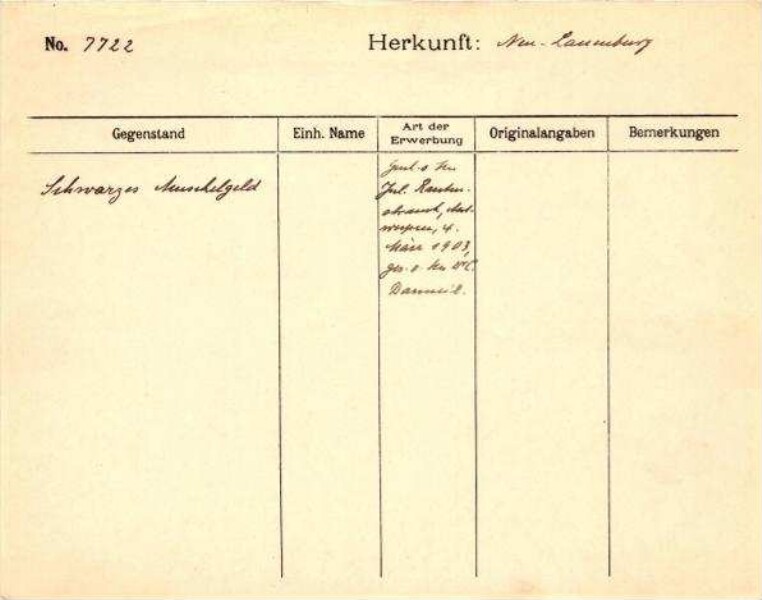 No. 7722
Herkunft: Neu-Lauenburg
Gegenstand
Einh. Name
Art der
Erwerbung
Originalangaben
Bemerkungen
Schwarzes Muschelgeld
Jul. Rauten-
strauch, Ant-
werpen, 4.
März 1903,